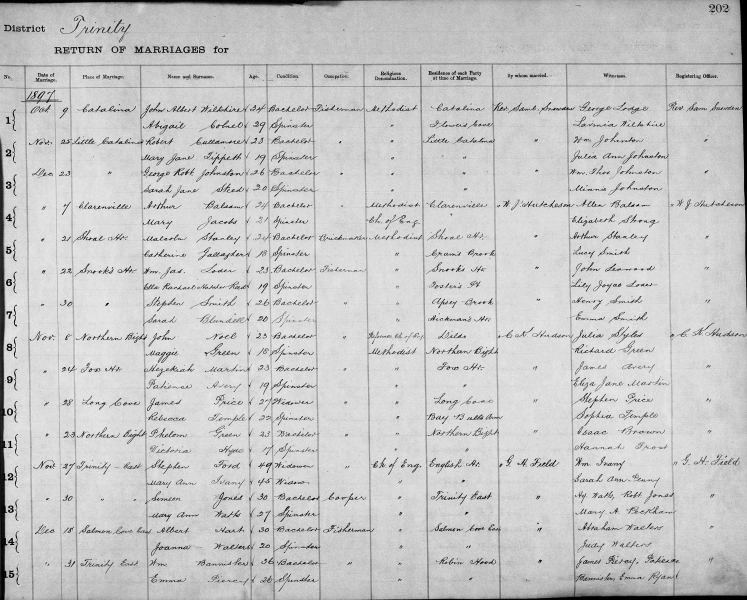 202
District Trinity
RETURN OF MARRIAGES for
No. Date of Marriage. Place of Marriage. Name and Surname. Age. Condition. Occupation. Religious Denomination. Residence of each Party at time of Marriage. By whom married. Witnesses. Registering Officer.
1897
1 Oct 9 Catalina John Albert Wiltshire 24 Bachelor Fisherman Methodist Catalina Rev. Saml. Snowden George Lodge Rev Sam Snowden
Abigail 29 Spinster " Flowers Cove Lavinia Wiltshire
2 Nov. 25 Little Catalina Robert Cullamore 23 Bachelor " " Little Catalina " Wm Johnston "
Mary Jane Tippett 19 Spinster " " Julia Ann Johnston
3 Dec 23 " George Robt Johnston 26 Bachelor " " " " Wm. Thos Johnston "
Sarah Jane Sked 20 Spinster " " Minnie Johnston
4 " 7 Clarenville Arthur Balsom 24 Bachelor " Methodist Clarenville " W. J. Hutcheson Allen Balsom " W. J. Hutcheson
Mary Jacobs 21 Spinster Ch. of Eng. " Elizabeth Strong
5 " 21 Shoal Hr. Malcolm Stanley 24 Bachelor Brickmaker Methodist Shoal Hr. " Arthur Stanley "
Catherine Gallagher 18 Spinster " Brook Lucy Smith
6 " 22 Snook's Hr. Wm. Jas. Loder 23 Bachelor Fisherman " Snooks Hr " John "
Ella Rachael Reid 19 Spinster " Foster's Pt Lily Joyce Loder
7 " 30 " Stephen Smith 26 Bachelor " " Apsey Brook " Henry Smith "
Sarah Blundell 20 Spinster " Hickman's Hr. Emma Smith
8 Nov. 6 Northern Bight John Noel 23 Bachelor " Reformed Ch. of Eng. " C. K. Hudson Julia Styles " C. K. Hudson
Maggie Green 18 Spinster Methodist Northern Bight Richard Green
9 " 24 Fox Hr. Hezekiah Martin 23 Bachelor " " Fox Hr. " James Avery "
Patience Avery 19 Spinster " " Eliza Jane Martin
10 " 28 Long Cove James Price 27 Widower " " Long Cove " Stephen Price "
Rebecca Temple 22 Spinster " Bay Bulls Arm Sophia Temple
11 " 23 Northern Bight Green 23 Bachelor " " Northern Bight " Isaac Brown "
Victoria Spinster " " Hannah Frost
12 Nov. 27 Trinity East Stephen Ford 49 Widower " Ch of Eng. English Hr. " G. H. Field Wm Ivany " G. H. Field
Mary Ann Ivany 45 Widow " " Sarah Ann
13 " 30 " " Simeon Jones 30 Bachelor Cooper " Trinity East " Hy. Watts, Robt Jones "
Mary Ann Watts 27 Spinster " " Mary A. Peckham
14 Dec 18 Salmon Cove East Albert Hart 30 Bachelor Fisherman " Salmon Cove East " Abraham Walters "
Joanna Walters 20 Spinster " " Judy Walters
15 " 31 Trinity East Wm Bannister 36 Bachelor " " Robin Hood " James Piercy, Patience "
Emma Piercy 26 Spinster " " Bannister, Emma Ryan